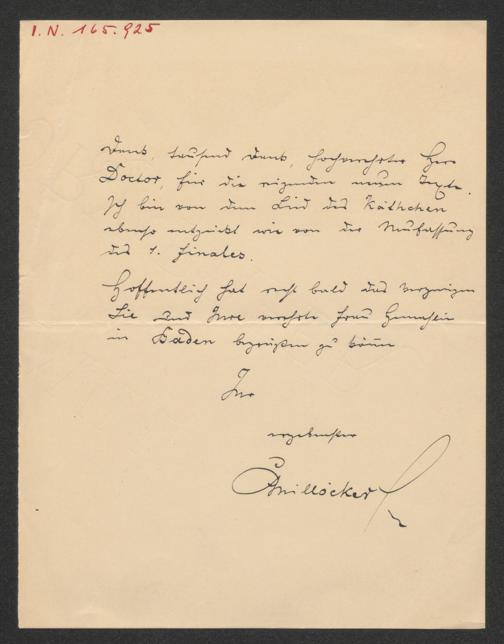 I.N. 165.925
Dank, tausend Dank, hochverehrter Herr
Doctor, für die reizenden neuen Texte.
Ich bin von dem Lied des Käthchen
ebenso entzückt wie von der Neufassung
des 1. Finales.
Hoffentlich hat recht bald das Vergnügen
Sie und Ihre verehrte Frau Gemahlin
in Baden begrüßen zu können
Ihr
ergebenster
CMillöcker